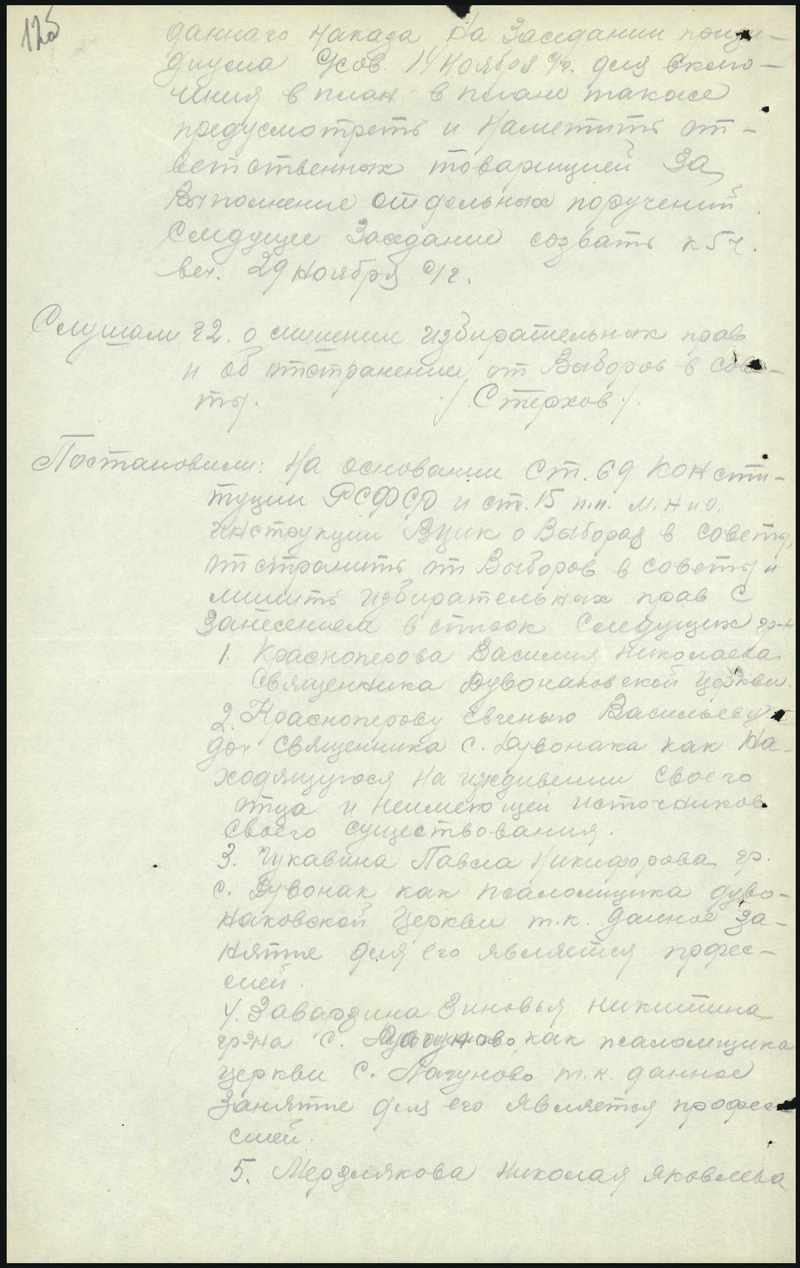 125
даннаго наказа на Заседании прези-
диума с/сов. 14 Ноября с/г. для вклю-
чения в план в плане также
предусмотреть и наметить от-
ветственных товарищей За
Выполнение отдельных поручений
Следущее Заседание созвать к 5 ч.
веч. 29 Ноября с/г.
Слушали §2. о лишении избирательных прав
и об отстранении от Выборов в сове-
ты. /Стерхов/.
Постановили: На основании Ст. 69 Консти-
туции РСФСР и ст. 15 п.п. М. Н и О.
инструкции Вцик о Выборах в советы,
отстранить от Выборов в советы и
лишить избирательных прав С
Занесением в список Следущих гр-н
1. Красноперова Василия Николаева
Священника Дувонаковской Церкви.
2. Красноперову Евгенью Васильевну
доч Священника с. Дувонака как На-
ходящуюся на иждивении своего
отца и неимеющей источников
Своего существования.
3. Чукавина Павла Никифорова гр.
с. Дувонак как псаломщика дуво-
наковской Церкви т.к. данное за-
нятие для его является профес-
сией.
4. Зиновья Никитина
гр-на с. Пагуново как псаломщика
церкви с. Пагуново т.к. данное
Занятие для его является професс
сией.
5. Мерзлякова Николая Яковлева